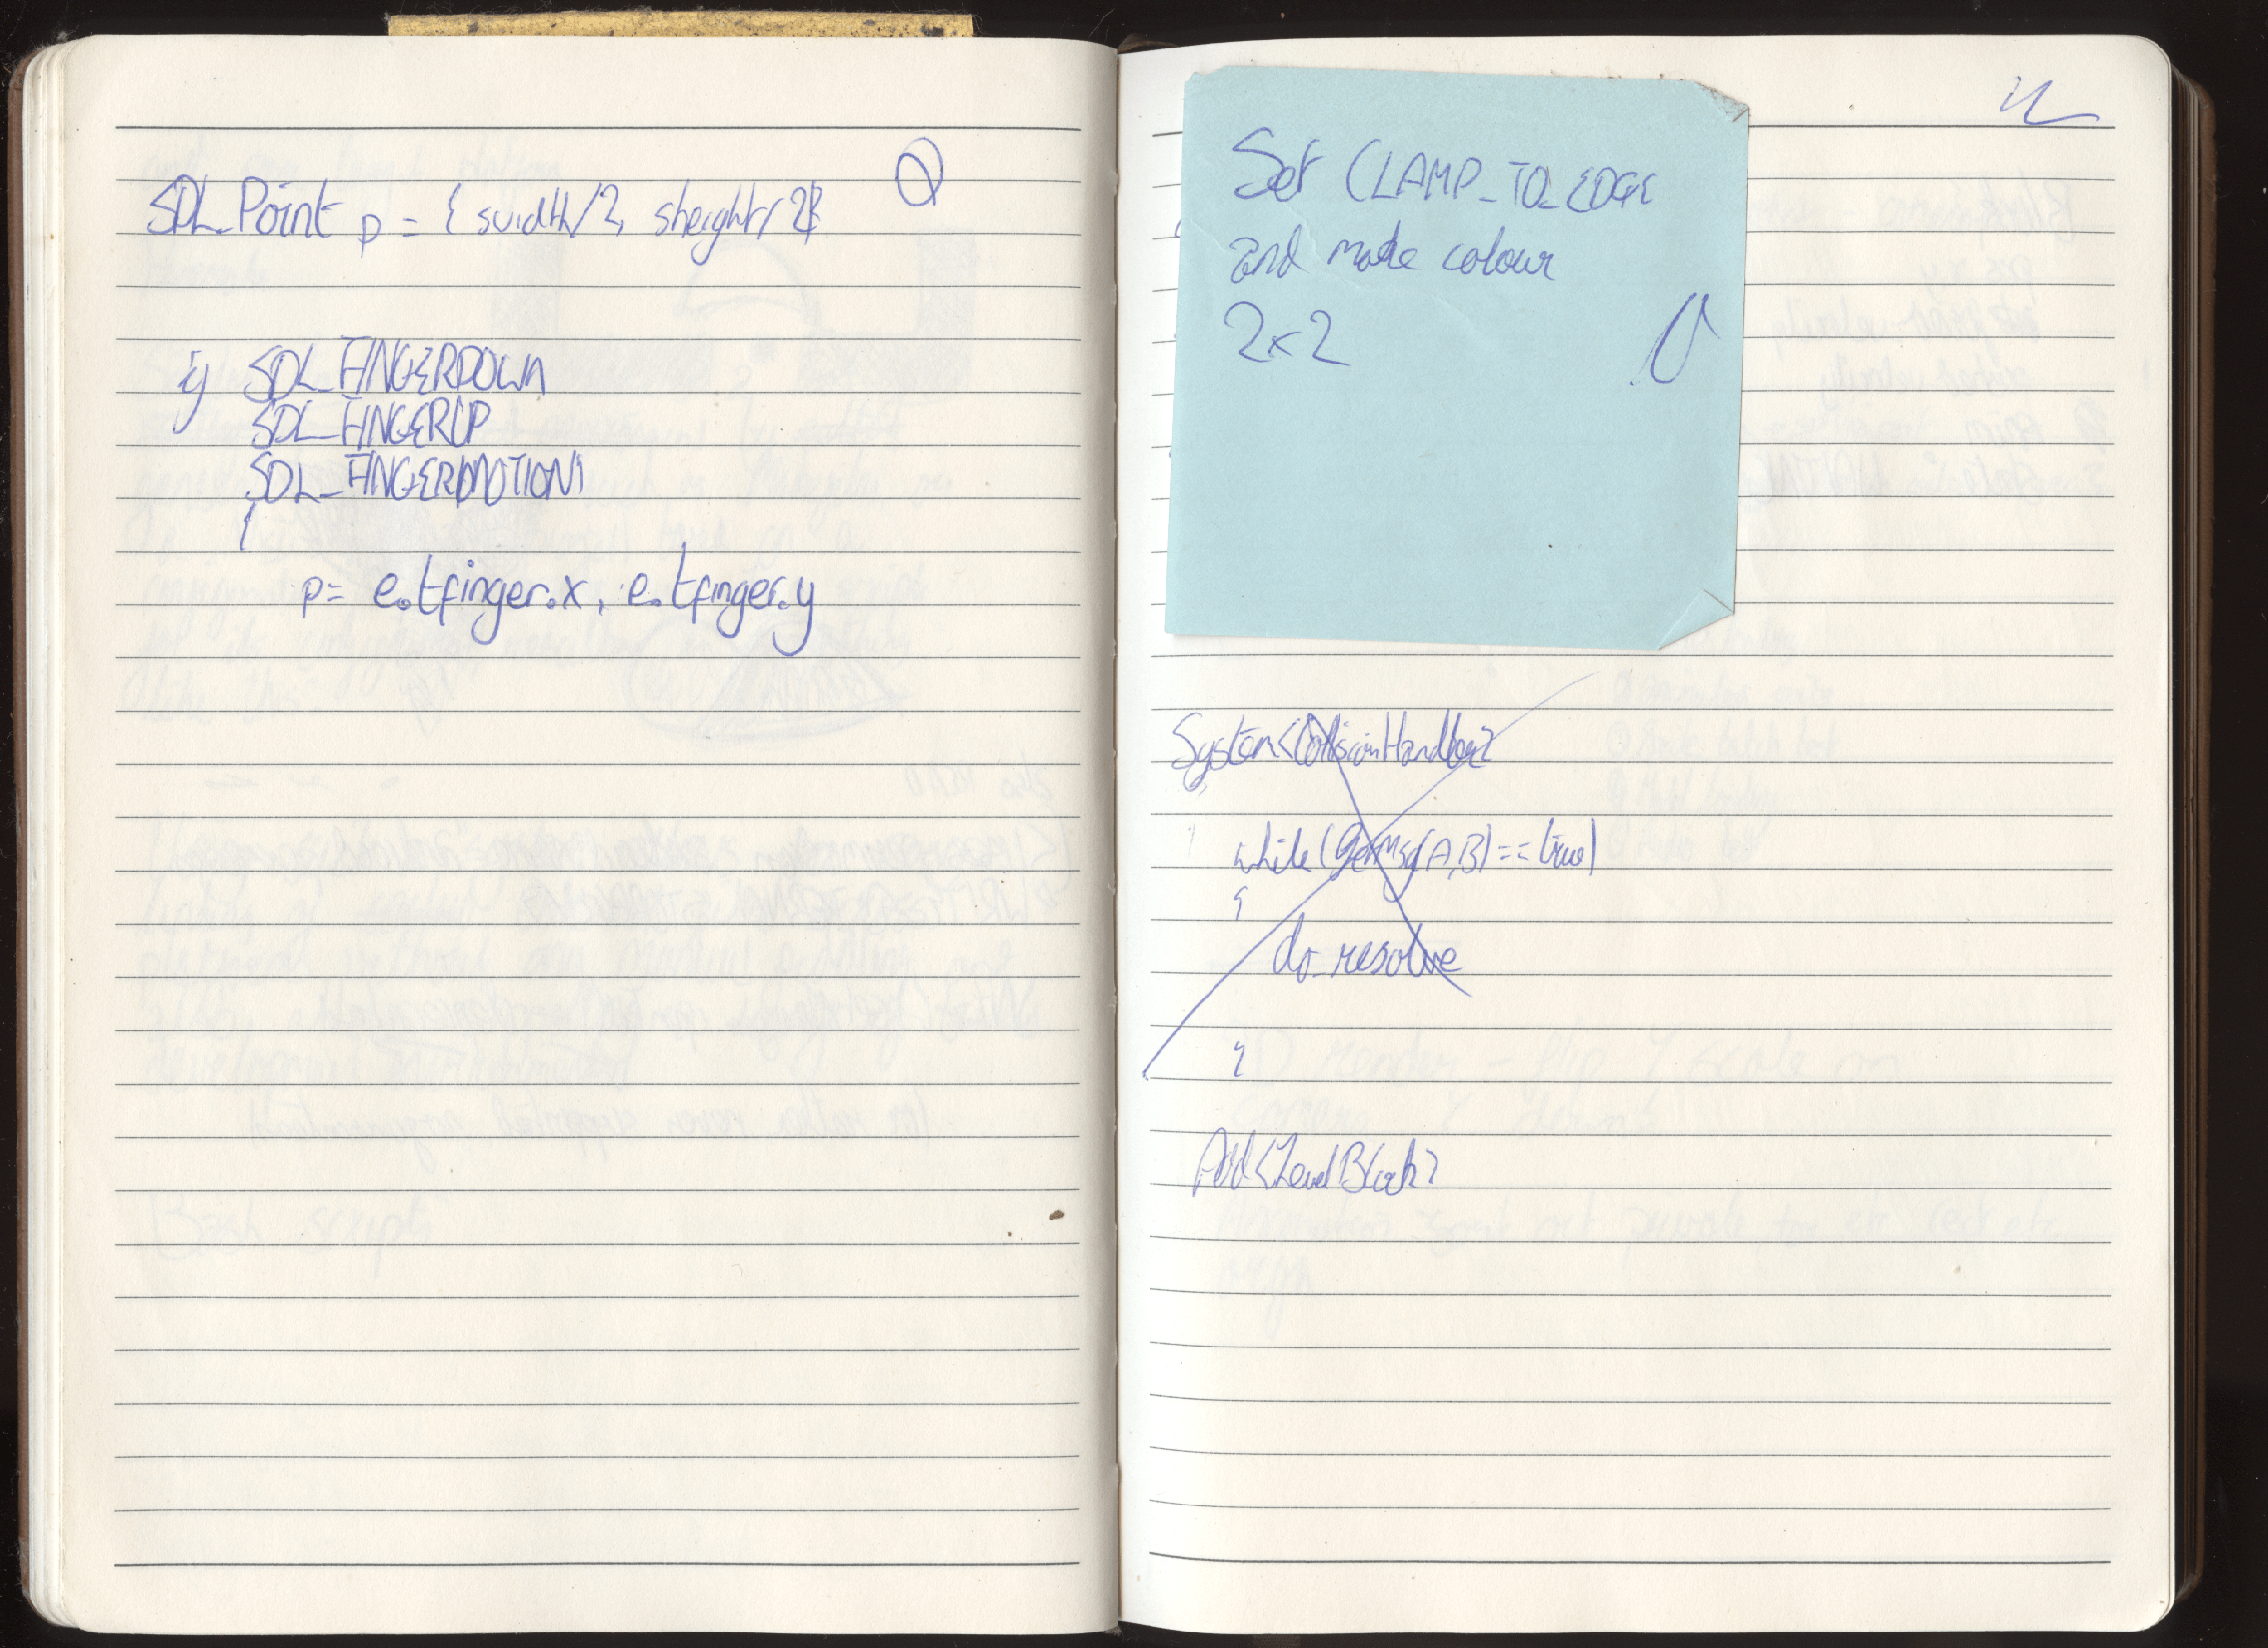 SDL_Point p = { swidth/2, sheight/2 }
if SDL_FINGERDOWN
SDL_FINGERUP
SDL_FINGERMOTION
{
p= e.tfinger.x, e.tfinger.y
Set CLAMP_TO_EDGE
and make colour
2x2
System<CollisionHandler>
while(GetMsg(A,B)==true)
{
do_resolve
}
Add<LevelBlock>